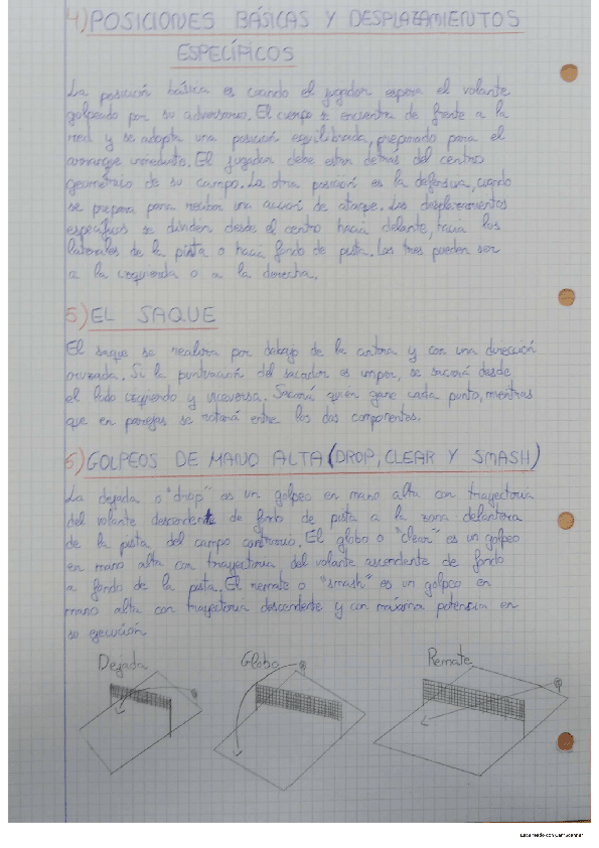 4) POSICIONES BÁSICAS Y DESPLAZAMIENTOS
ESPECÍFICOS
La posición básica es cuando el jugador espera el volante
golpeado por su adversario. El cuerpo se encuentra de frente a la
red y se adopta una posición equilibrada, preparado para el
arranque inmediato. El jugador debe estar detrás del centro
geométrico de su campo. La otra posición es la defensiva, cuando
se prepara para recibir una acción de ataque. Los desplazamientos
específicos se dividen desde el centro hacia delante, hacia los
laterales de la pista o hacia fondo de pista. Los tres pueden ser
a la izquierda o a la derecha.
5) EL SAQUE
El saque se realiza por debajo de la cintura y con una dirección
cruzada. Si la puntuación del sacador es impar, se sacará desde
el lado izquierdo y viceversa. Sacará quien gane cada punto, mientras
que en parejas se rotará entre los dos componentes.
6) GOLPEOS DE MANO ALTA (DROP, CLEAR Y SMASH)
La dejada o "drop" es un golpeo en mano alta con trayectoria
del volante descendente de fondo de pista a la zona delantera
de la pista del campo contrario. El globo o "clear" es un golpeo
en mano alta con trayectoria del volante ascendente de fondo
a fondo de la pista. El remate o "smash" es un golpeo en
mano alta con trayectoria descendente y con máxima potencia en
su ejecución
Dejada Globo Remate